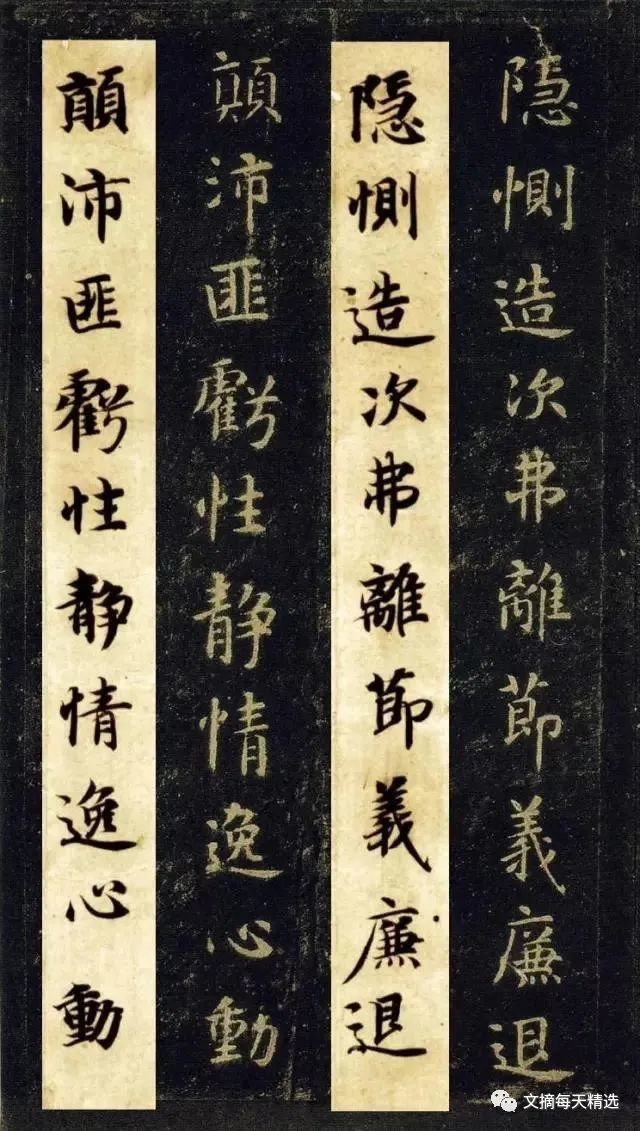 隐恻造次弗離莭義廉退
隐恻造次弗離莭義廉退
顛沛匪虧性静情逸心動
顛沛匪虧性静情逸心動
文摘每天精选